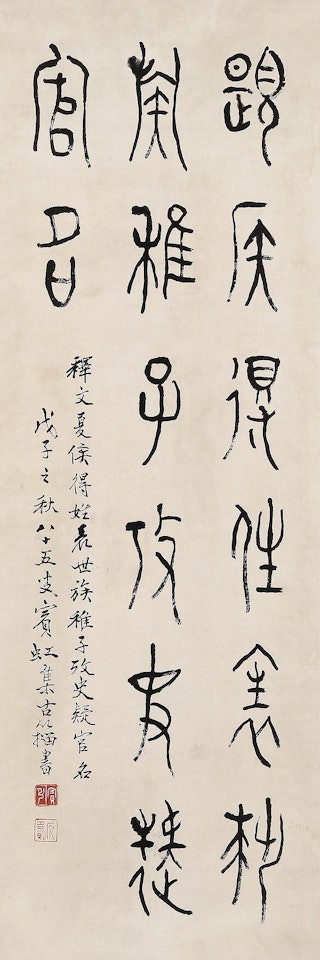 夏侯得姓表世
族稚子攷史疑
官名
釋文夏侯得姓表世族稚子攷史疑官名
戊子之秋八十五叟賓虹集古籀書